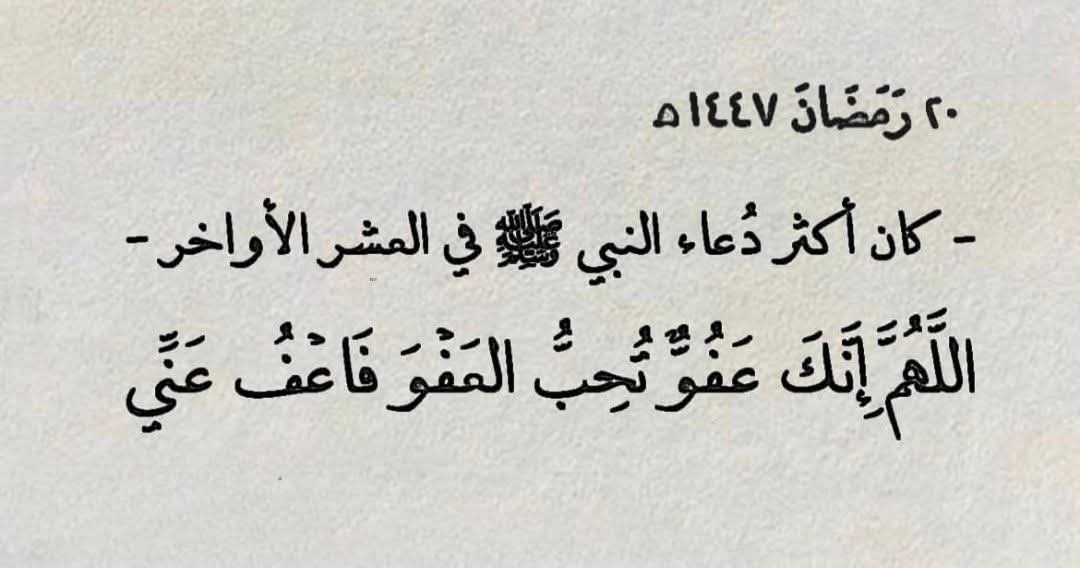 ٢٠ رَمَضَانَ ١٤٤٧ه
- كان أكثر دُعاء النبي ﷺ في العشر الأواخر -
اللَّهُمَّ إِنَّكَ عَفُوٌّ تُحِبُّ العَفْوَ فَاعْفُ عَنِّي